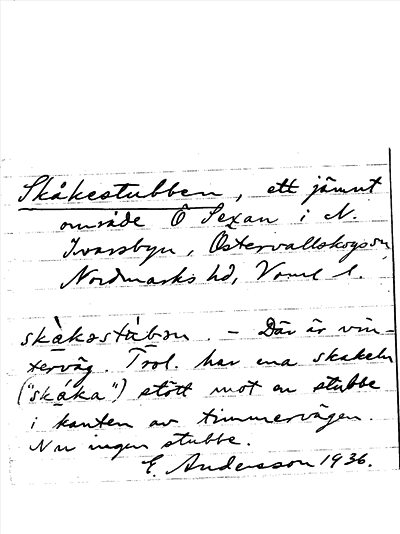 Skåkestubben, ett jämnt
område Ö Sexan i N.
Ivarsbyn, Östervallskogs sn,
Nordmarks hd, Värml l.
skɑ̀kəstúbən. – Där är vin-
terväg. Trol. har ena skakeln
("skáka") stött mot en stubbe
i kanten av timmervägen.
Nu ingen stubbe.
E. Andersson 1936.